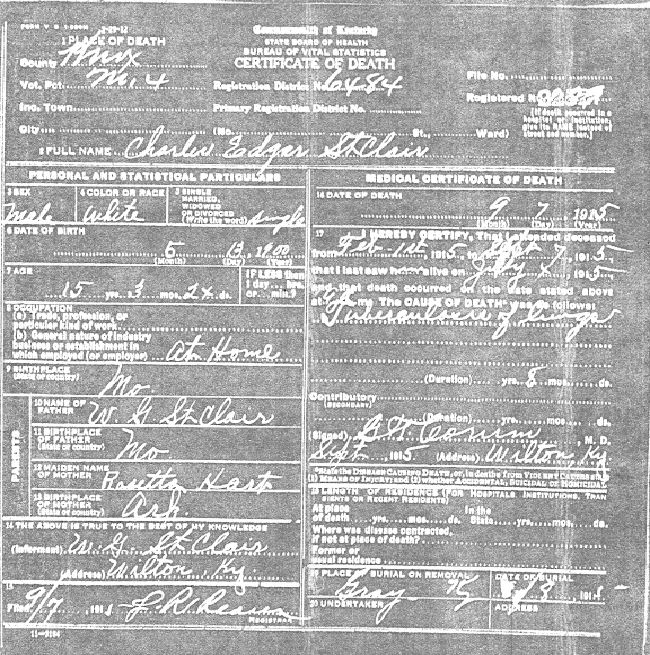 1 PLACE OF DEATH
Commonwealth of Kentucky
STATE BOARD OF HEALTH
BUREAU OF VITAL STATISTICS
CERTIFICATE OF DEATH
County Knox
Vot. Pct. M. 4
Registration District No. 6484
File No.
Inc. Town
Primary Registration District No.
Registered No.
City (No. St., Ward)
(If death occurred in a hospital or institution, give its NAME instead of street and number.)
2 FULL NAME Charlie Edgar St Clair
PERSONAL AND STATISTICAL PARTICULARS
3 SEX
Male
4 COLOR OR RACE
White
5 SINGLE, MARRIED, WIDOWED OR DIVORCED (Write the word) Single
6 DATE OF BIRTH
5 13, 1900
(Month) (Day) (Year)
7 AGE
15 yrs. 3 mos. ds.
IF LESS than 1 day hrs. or min.?
8 OCCUPATION
(a) Trade, profession, or particular kind of work
(b) General nature of industry business or establishment in which employed (or employer) At Home
9 BIRTHPLACE
(State or country) Mo
PARENTS
10 NAME OF FATHER W G St Clair
11 BIRTHPLACE OF FATHER (State or country) Mo
12 MAIDEN NAME OF MOTHER Rosetta Hart
13 BIRTHPLACE OF MOTHER (State or country) Ark.
14 THE ABOVE IS TRUE TO THE BEST OF MY KNOWLEDGE
(Informant) W. G. St Clair
(Address) Wilton, Ky
15
Filed 9/7, 191
REGISTRAR
11-3184
MEDICAL CERTIFICATE OF DEATH
16 DATE OF DEATH
9 7, 1915
(Month) (Day) (Year)
17 I HEREBY CERTIFY, That I attended deceased
from Feb 1st, 1915, to 7, 1915,
that I last saw alive on, 1915,
and that death occurred on the date stated above
at m. The CAUSE OF DEATH was as follows:
Tuberculosis of lungs
(Duration) yrs. 8 mos. ds.
Contributory
(SECONDARY)
(Duration) yrs. mos. ds.
(Signed), M. D.
Sept, 1915 (Address) Wilton Ky
*State the DISEASE CAUSING DEATH, or, in deaths from VIOLENT CAUSES state (1) MEANS OF INJURY; and (2) whether ACCIDENTAL, SUICIDAL or HOMICIDAL.
18 LENGTH OF RESIDENCE (FOR HOSPITALS, INSTITUTIONS, TRANSIENTS OR RECENT RESIDENTS)
At place of death yrs. mos. ds. In the State yrs. mos. ds.
Where was disease contracted, if not at place of death?
Former or usual residence
19 PLACE OF BURIAL OR REMOVAL
Gray Ky
DATE OF BURIAL
8, 191
20 UNDERTAKER
ADDRESS